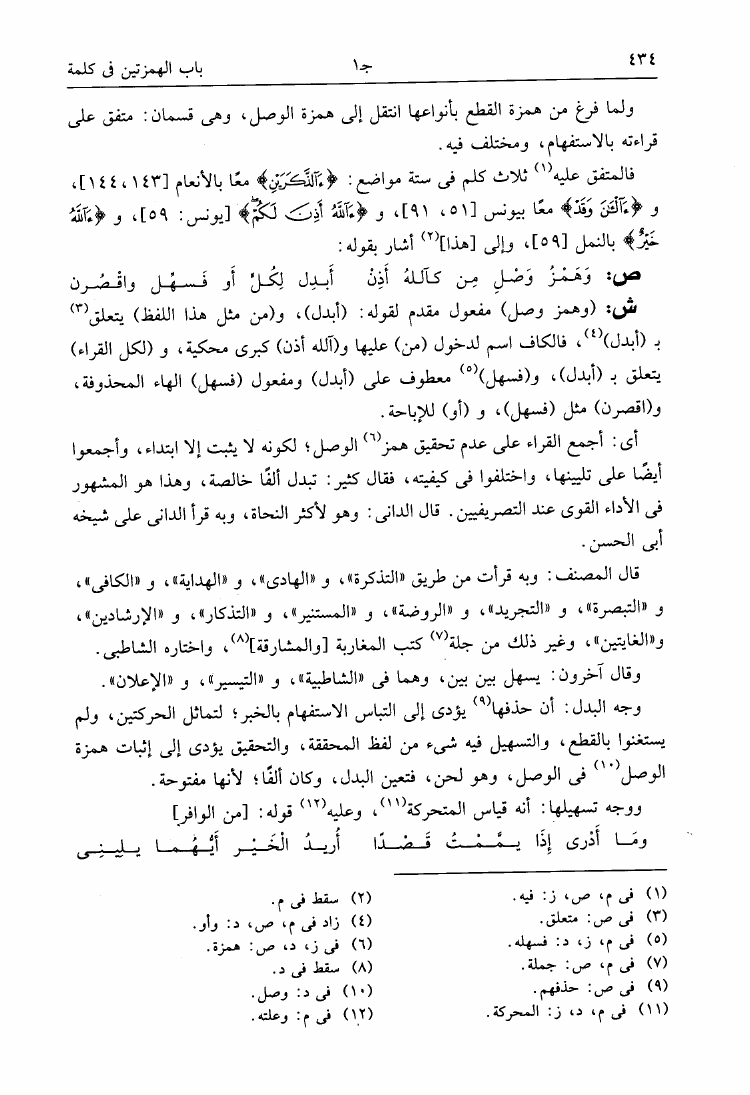 ٤٣٤ جـ١ باب الهمزتين فى كلمة
ولما فرغ من همزة القطع بأنواعها انتقل إلى همزة الوصل، وهى قسمان: متفق على
قراءته بالاستفهام، ومختلف فيه.
فالمتفق عليه(١) ثلاث كلم فى ستة مواضع: ﴿ءَآلذَّكَرَيْنِ﴾ معًا بالأنعام [١٤٣، ١٤٤]،
و ﴿ءَآلْـَٰٔنَ وَقَدْ﴾ معًا بيونس [٥١، ٩١]، و ﴿ءَآللَّهُ أَذِنَ لَكُمْ﴾ [يونس: ٥٩]، و ﴿ءَآللَّهُ
خَيْرٌ﴾ بالنمل [٥٩]، وإلى [هذا](٢) أشار بقوله:
ص: وَهَمْزُ وَصْلٍ مِن كَآللهُ أَذِنْ أَبدِل لِكُلٍّ أو فَسهِّل واقْصُرن
ش: (وهمز وصل) مفعول مقدم لقوله: (أبدل)، و(من مثل هذا اللفظ) يتعلق(٣)
بـ (أبدل)(٤)، فالكاف اسم لدخول (من) عليها و(آلله أذن) كبرى محكية، و (لكل القراء)
يتعلق بـ (أبدل)، و(فسهل)(٥) معطوف على (أبدل) ومفعول (فسهل) الهاء المحذوفة،
و(اقصرن) مثل (فسهل)، و (أو) للإباحة.
أى: أجمع القراء على عدم تحقيق همز(٦) الوصل؛ لكونه لا يثبت إلا ابتداء، وأجمعوا
أيضًا على تليينها، واختلفوا فى كيفيته، فقال كثير: تبدل ألفًا خالصة، وهذا هو المشهور
فى الأداء القوى عند التصريفيين. قال الدانى: وهو لأكثر النحاة، وبه قرأ الدانى على شيخه
أبى الحسن.
قال المصنف: وبه قرأت من طريق «التذكرة»، و «الهادى»، و «الهداية»، و «الكافى»،
و «التبصرة»، و «التجريد»، و «الروضة»، و «المستنير»، و «التذكار»، و «الإرشادين»،
و«الغايتين»، وغير ذلك من جلة(٧) كتب المغاربة [والمشارقة](٨)، واختاره الشاطبى.
وقال آخرون: يسهل بين بين، وهما فى «الشاطبية»، و «التيسير»، و «الإعلان».
وجه البدل: أن حذفها(٩) يؤدى إلى التباس الاستفهام بالخبر؛ لتماثل الحركتين، ولم
يستغنوا بالقطع، والتسهيل فيه شىء من لفظ المحققة، والتحقيق يؤدى إلى إثبات همزة
الوصل(١٠) فى الوصل، وهو لحن، فتعين البدل، وكان ألفًا؛ لأنها مفتوحة.
ووجه تسهيلها: أنه قياس المتحركة(١١)، وعليه(١٢) قوله: [من الوافر]
ومَا أَدْرِى إِذَا يـمَّمْتُ قَصْدًا أُريدُ الْخَيْرَ أَيُّهُما يـلينِى
(١) فى م، ص، ز: فيه. (٢) سقط فى م.
(٣) فى ص: متعلق. (٤) زاد فى م، ص، د: وأو.
(٥) فى م، ز، د: فسهله. (٦) فى ز، د، ص: همزة.
(٧) فى م، ص: جملة. (٨) سقط فى د.
(٩) فى ص: حذفهم. (١٠) فى د: وصل.
(١١) فى م، د، ز: المحركة. (١٢) فى م: وعلته.